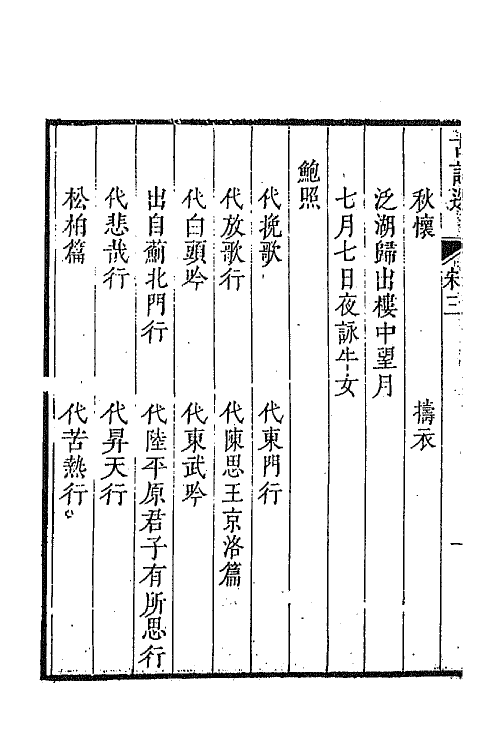 古詩選 宋三 一
秋懷 擣衣
泛湖歸出樓中望月
七月七日夜詠牛女
鮑照
代挽歌 代東門行
代放歌行 代陳思王京洛篇
代白頭吟 代東武吟
出自薊北門行 代陸平原君子有所思行
代悲哉行 代昇天行
松柏篇 代苦熱行